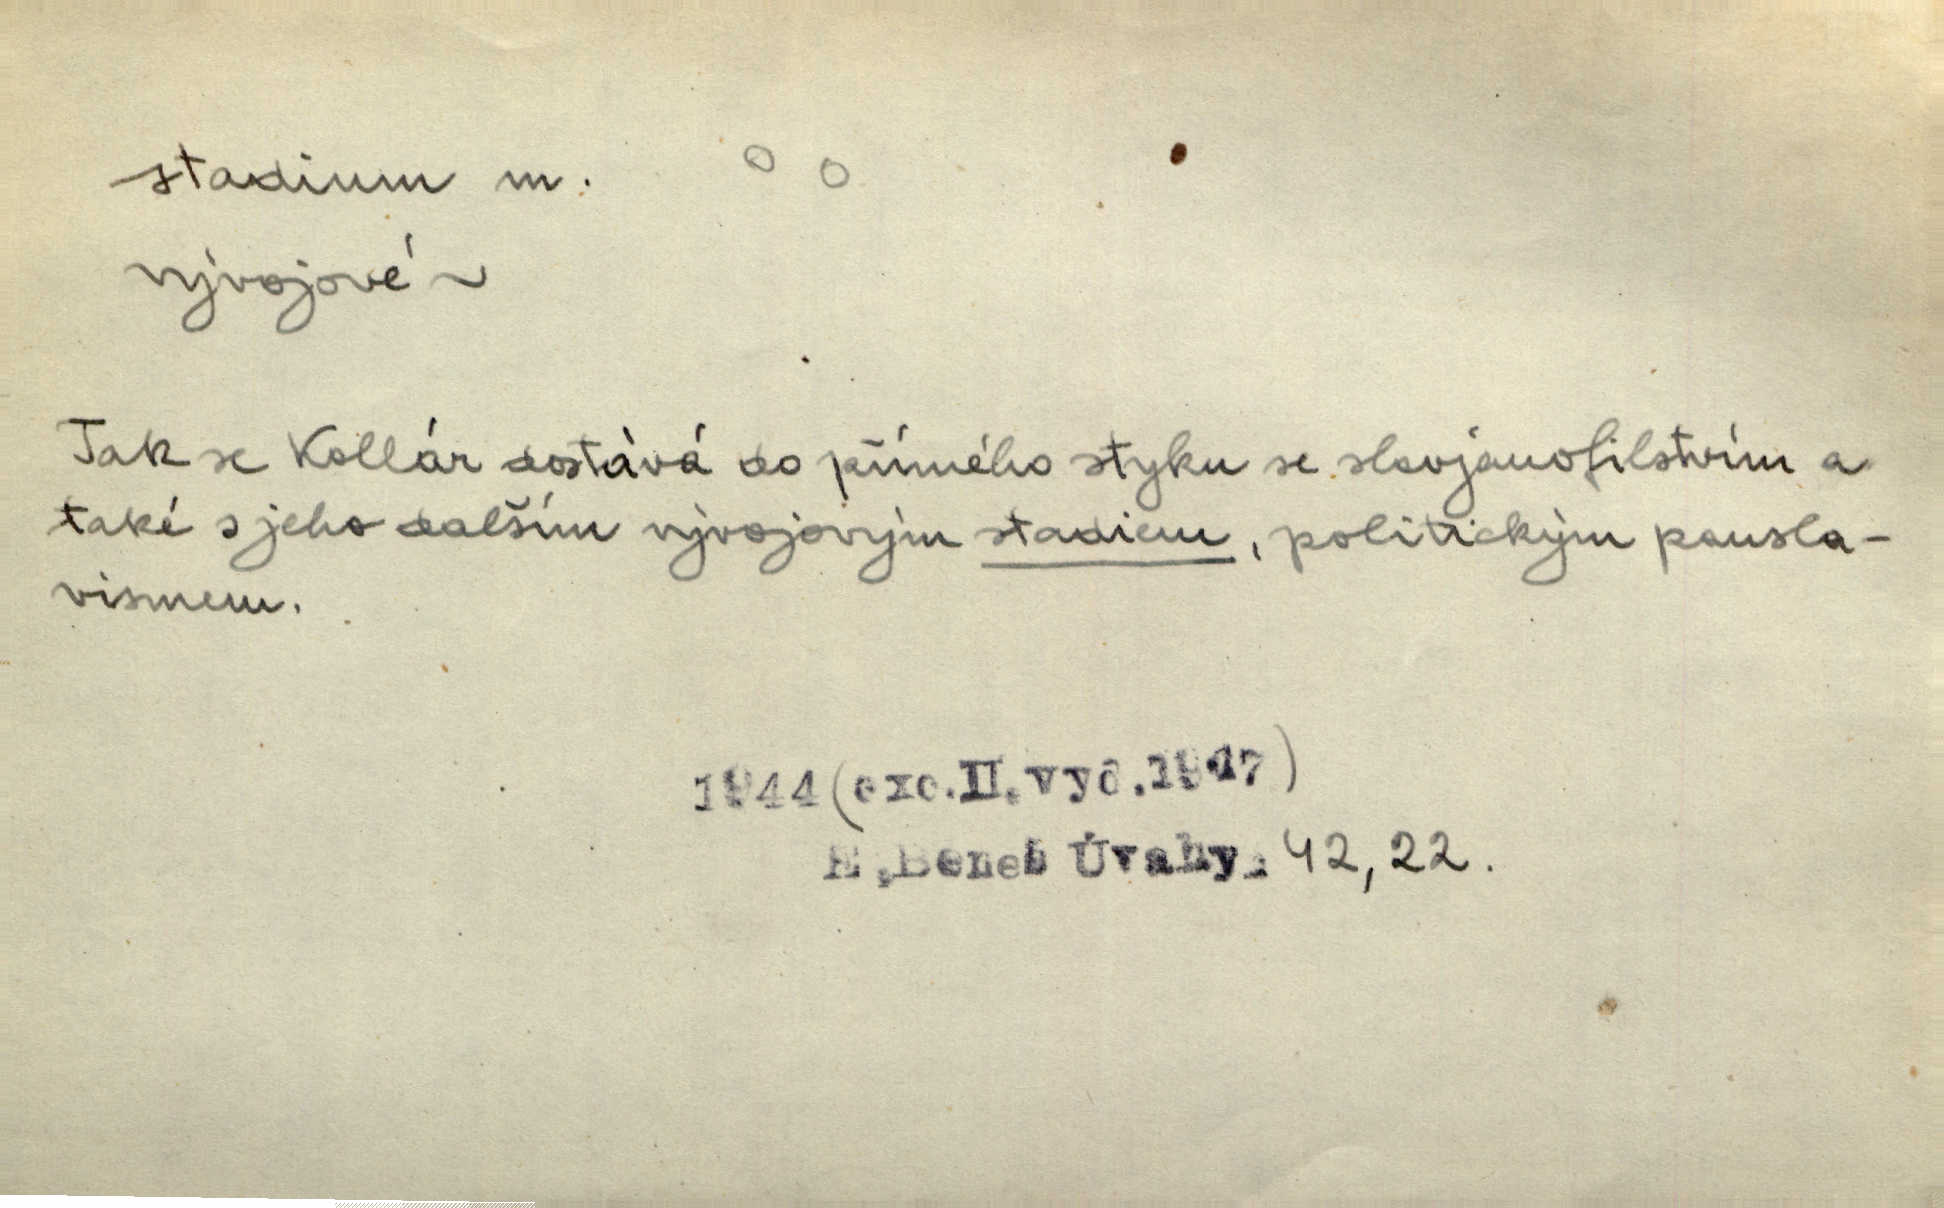 stadium n. o o
vývojové ~
Tak se Kollár dostává do přímého styku se slovjanofilstvím a
také s jeho dalším vývojovým stadiem, politickým pansla-
vismem.
1944 (exc.II.vyd.1947)
E.Beneš Úvahy, 42, 22.